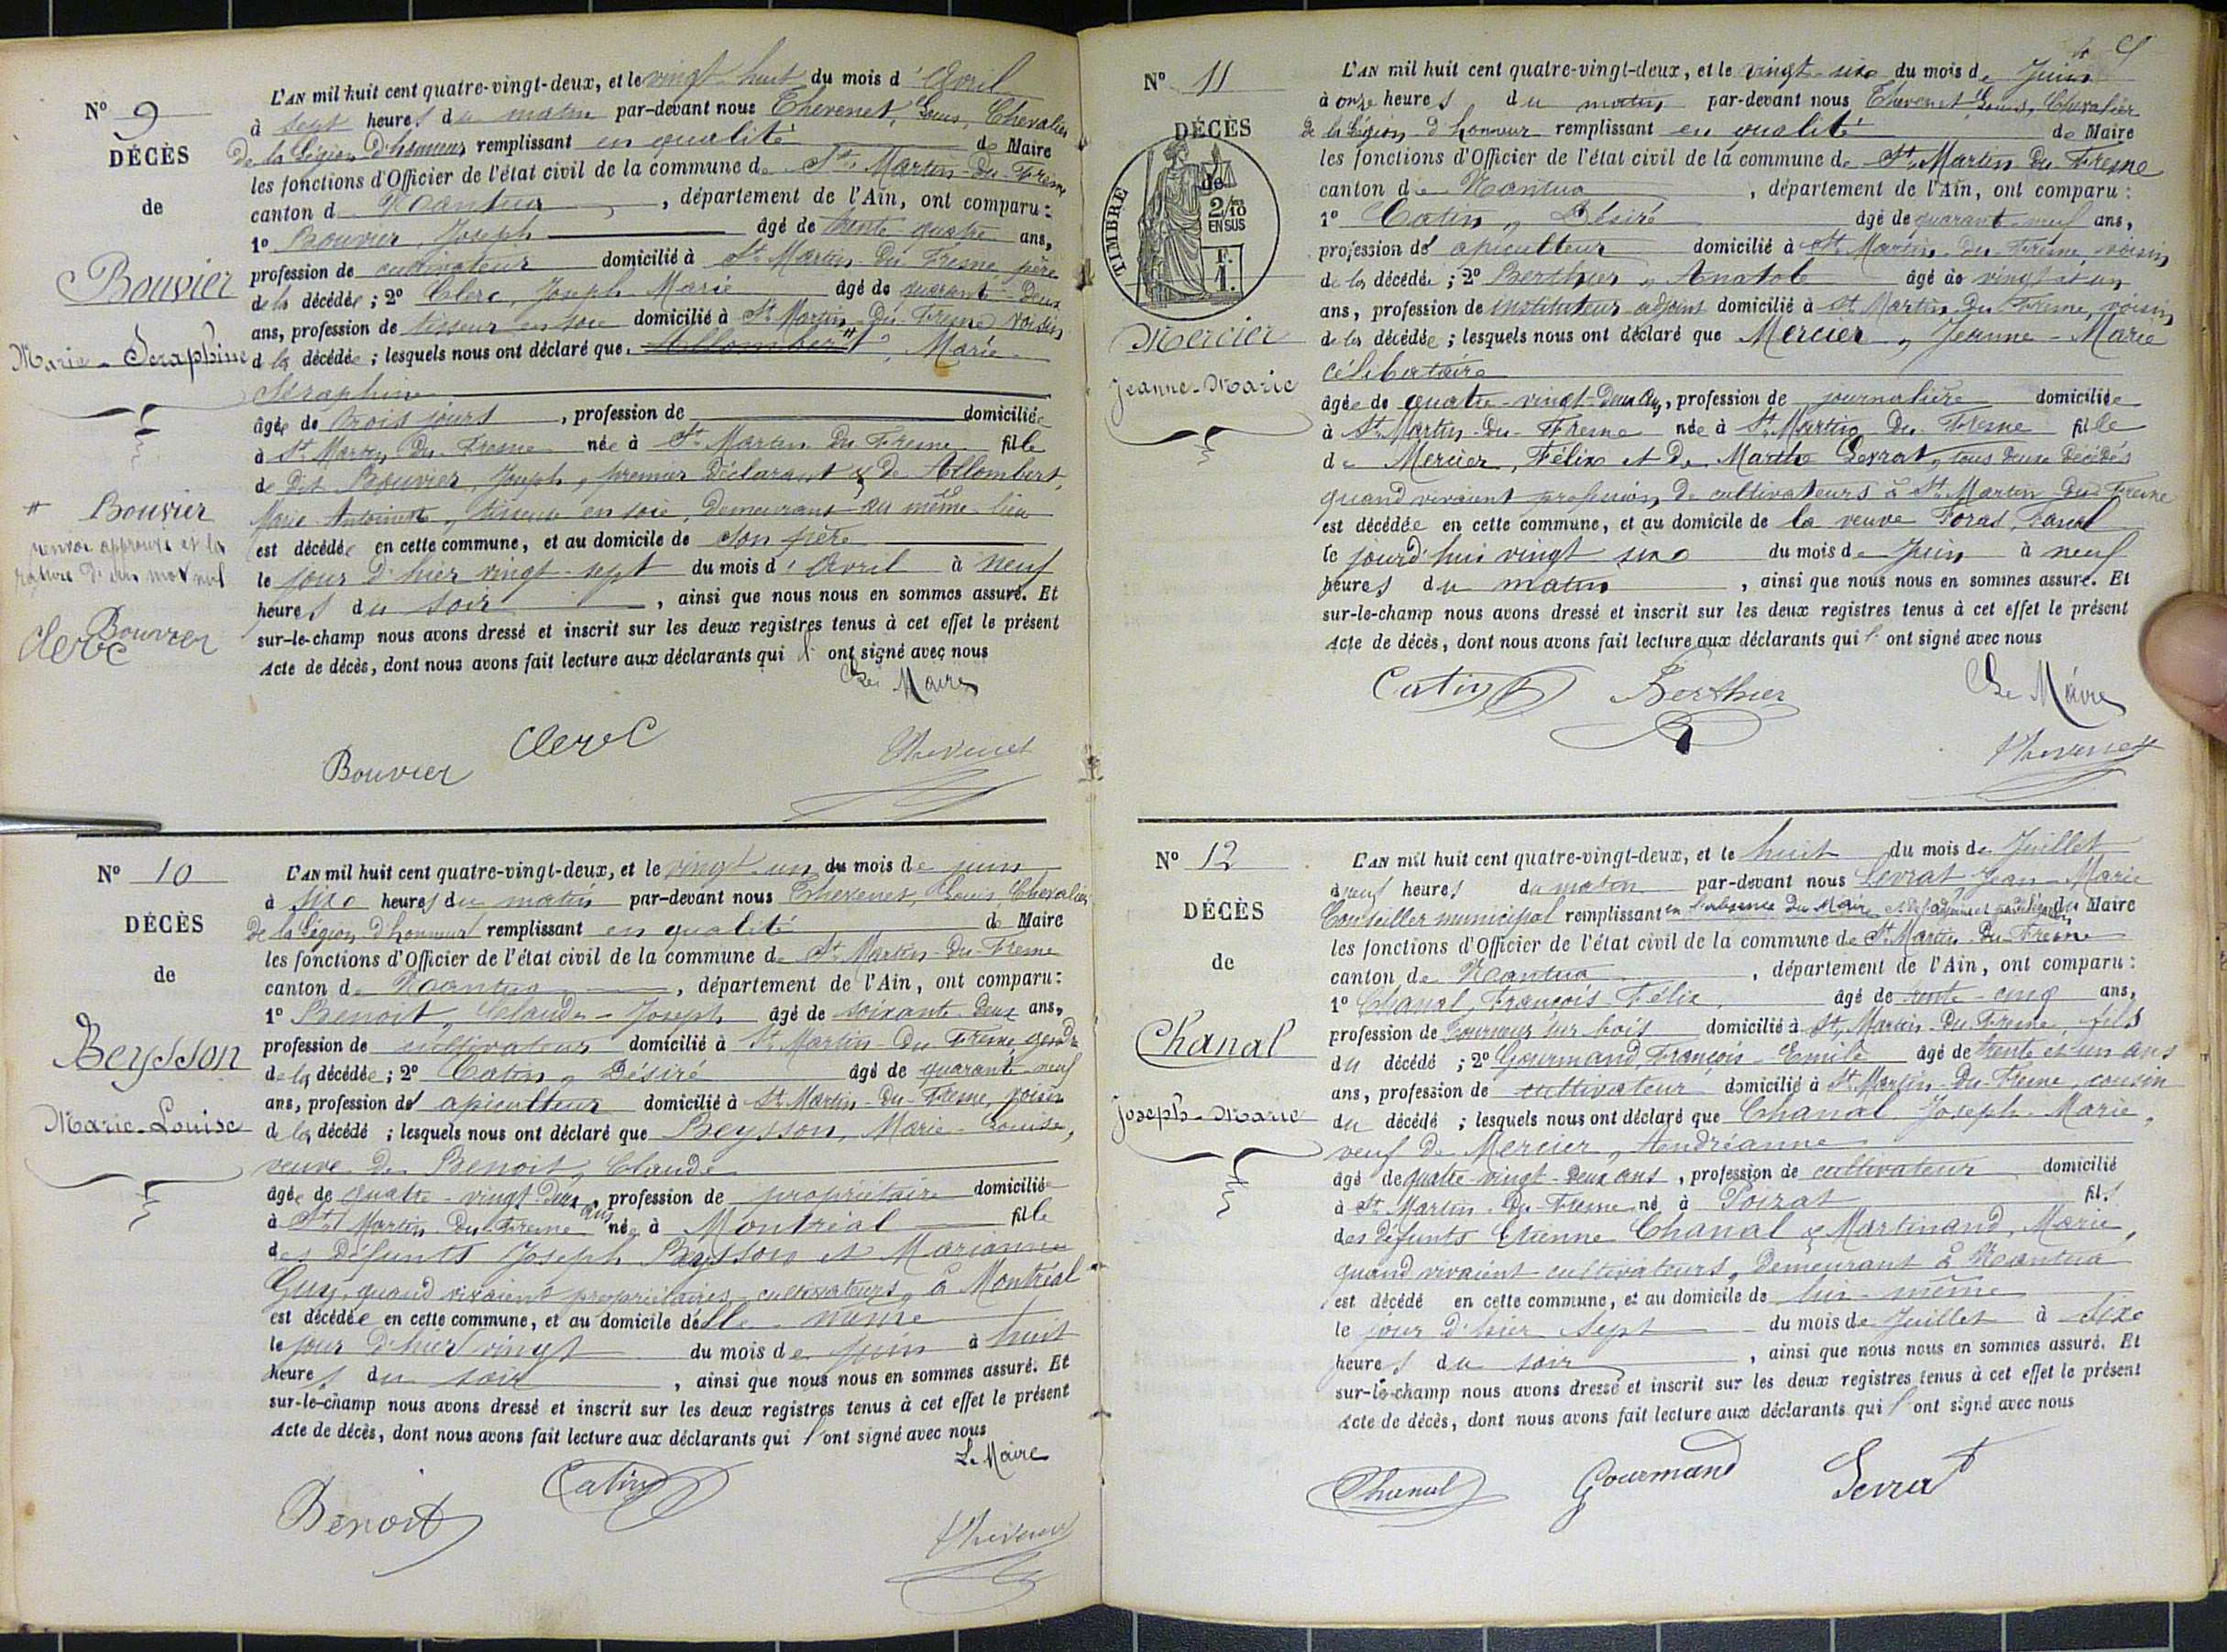 N° 9
DÉCÈS
de
Bouvier
Marie-Seraphine
# Bouvier
renvoi approuvé et la
rature d'un mot nul
Bouvier
Clerc
L'AN mil huit cent quatre-vingt-deux, et le vingt huit du mois d'Avril
à sept heures du matin par-devant nous Thevenet, Louis, Chevalier
de la Légion d'honneur remplissant en qualité de Maire
les fonctions d'Officier de l'état civil de la commune de St Martin-du-Fresne
canton de Nantua, département de l'Ain, ont comparu :
1° Bouvier, Joseph âgé de trente quatre ans,
profession de cultivateur domicilié à St Martin-du-Fresne, père
de la décédée ; 2° Clerc, Joseph-Marie âgé de quarante-deux
ans, profession de tisseur en soie domicilié à St Martin-du-Fresne voisin
de la décédée ; lesquels nous ont déclaré que Allombert #, Marie
Séraphine
âgée de trois jours, profession de domiciliée
à St Martin du Fresne née à St Martin du Fresne fille
de dit Bouvier, Joseph, premier déclarant & de Allombert,
Marie Antoinette, tisseuse en soie, demeurant au même lieu
est décédée en cette commune, et au domicile de son père
le jour d'hier vingt-sept du mois d'Avril à neuf
heures du soir, ainsi que nous nous en sommes assuré. Et
sur-le-champ nous avons dressé et inscrit sur les deux registres tenus à cet effet le présent
Acte de décès, dont nous avons fait lecture aux déclarants qui l'ont signé avec nous
Le Maire
Clerc
Bouvier
Thevenet
N° 10
DÉCÈS
de
Beysson
Marie-Louise
L'AN mil huit cent quatre-vingt-deux, et le vingt un du mois de juin
à six heures du matin par-devant nous Thevenet, Louis, Chevalier
de la Légion d'honneur remplissant en qualité de Maire
les fonctions d'Officier de l'état civil de la commune de St Martin-du-Fresne
canton de Nantua, département de l'Ain, ont comparu :
1° Benoit, Claude-Joseph âgé de soixante-deux ans,
profession de cultivateur domicilié à St Martin-du-Fresne, gendre
de la décédée ; 2° Catin, Désiré âgé de quarante-neuf
ans, profession d'apiculteur domicilié à St Martin-du-Fresne, voisin
de la décédé ; lesquels nous ont déclaré que Beysson, Marie-Louise,
veuve de Benoit, Claude
âgée de quatre-vingt-deux ans, profession de propriétaire domiciliée
à St Martin du Fresne née à Montréal fille
des défunts Joseph Beysson et Marianne
Guy, quand vivaient propriétaires cultivateurs, à Montréal
est décédée en cette commune, et au domicile d'elle-même
le jour d'hier vingt du mois de juin à huit
heures du soir, ainsi que nous nous en sommes assuré. Et
sur-le-champ nous avons dressé et inscrit sur les deux registres tenus à cet effet le présent
Acte de décès, dont nous avons fait lecture aux déclarants qui l'ont signé avec nous
Le Maire
Catin
Benoit
Thevenet
N° 11
DÉCÈS
de
TIMBRE
2/10 EN SUS
F. 1.
Mercier
Jeanne-Marie
L'AN mil huit cent quatre-vingt-deux, et le vingt-six du mois de Juin
à onze heures du matin par-devant nous Thevenet Louis, Chevalier
de la Légion d'honneur remplissant en qualité de Maire
les fonctions d'Officier de l'état civil de la commune de St Martin du Fresne
canton de Nantua, département de l'Ain, ont comparu :
1° Catin, Désiré âgé de quarante-neuf ans,
profession d'apiculteur domicilié à St Martin-du-Fresne, voisin
de la décédée ; 2° Berthier, Anatole âgé de vingt et un
ans, profession de instituteur adjoint domicilié à St Martin-du-Fresne, voisin
de la décédée ; lesquels nous ont déclaré que Mercier, Jeanne-Marie
célibataire
âgée de quatre-vingt-deux ans, profession de journalière domiciliée
à St Martin-du-Fresne née à St Martin-du-Fresne fille
de Mercier, Félix et de Marthe Levrat, tous deux décédés
quand vivaient profession de cultivateurs à St Martin du Fresne
est décédée en cette commune, et au domicile de la veuve Foras,
le jourd'hui vingt six du mois de Juin à neuf
heures du matin, ainsi que nous nous en sommes assuré. Et
sur-le-champ nous avons dressé et inscrit sur les deux registres tenus à cet effet le présent
Acte de décès, dont nous avons fait lecture aux déclarants qui l'ont signé avec nous
Catin Berthier Le Maire
Thevenet
N° 12
DÉCÈS
de
Chanal
Joseph-Marie
L'AN mil huit cent quatre-vingt-deux, et le huit du mois de Juillet
à neuf heures du matin par-devant nous Levrat Jean-Marie
Conseiller municipal remplissant en l'absence du Maire et de l'adjoint du Maire
les fonctions d'Officier de l'état civil de la commune de St Martin-du-Fresne
canton de Nantua, département de l'Ain, ont comparu :
1° Chanal, François-Félix âgé de trente-cinq ans,
profession de tourneur sur bois domicilié à St Martin-du-Fresne, fils
du décédé ; 2° Gourmand, François-Emile âgé de trente et un ans
ans, profession de cultivateur domicilié à St Martin-du-Fresne, cousin
du décédé ; lesquels nous ont déclaré que Chanal, Joseph-Marie,
veuf de Mercier, Andréanne
âgé de quatre-vingt-deux ans, profession de cultivateur domicilié
à St Martin-du-Fresne né à Poizat fils
des défunts Etienne Chanal & Martinand, Marie,
quand vivaient cultivateurs, demeurant à Nantua
est décédé en cette commune, et au domicile de lui-même
le jour d'hier sept du mois de Juillet à six
heures du soir, ainsi que nous nous en sommes assuré. Et
sur-le-champ nous avons dressé et inscrit sur les deux registres tenus à cet effet le présent
Acte de décès, dont nous avons fait lecture aux déclarants qui l'ont signé avec nous
Chanal Gourmand Levrat